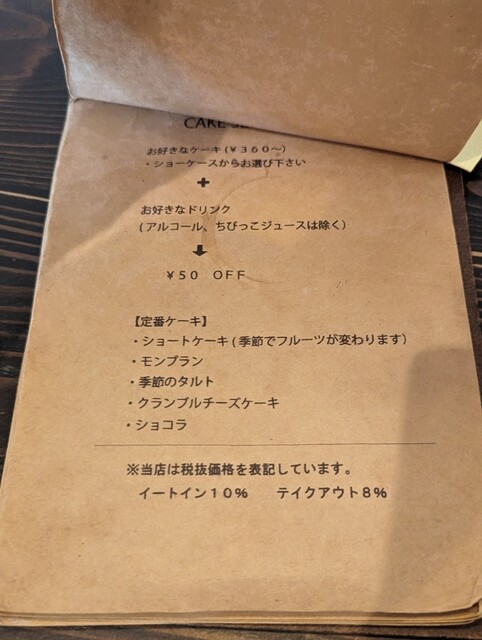 CAKE
お好きなケーキ(￥３６０～)
・ショーケースからお選び下さい
+
お好きなドリンク
(アルコール、ちびっこジュースは除く)
￥５０ OFF
【定番ケーキ】
・ショートケーキ(季節でフルーツが変わります)
・モンブラン
・季節のタルト
・クランブルチーズケーキ
・ショコラ
※当店は税抜価格を表記しています。
イートイン１０％ テイクアウト８％